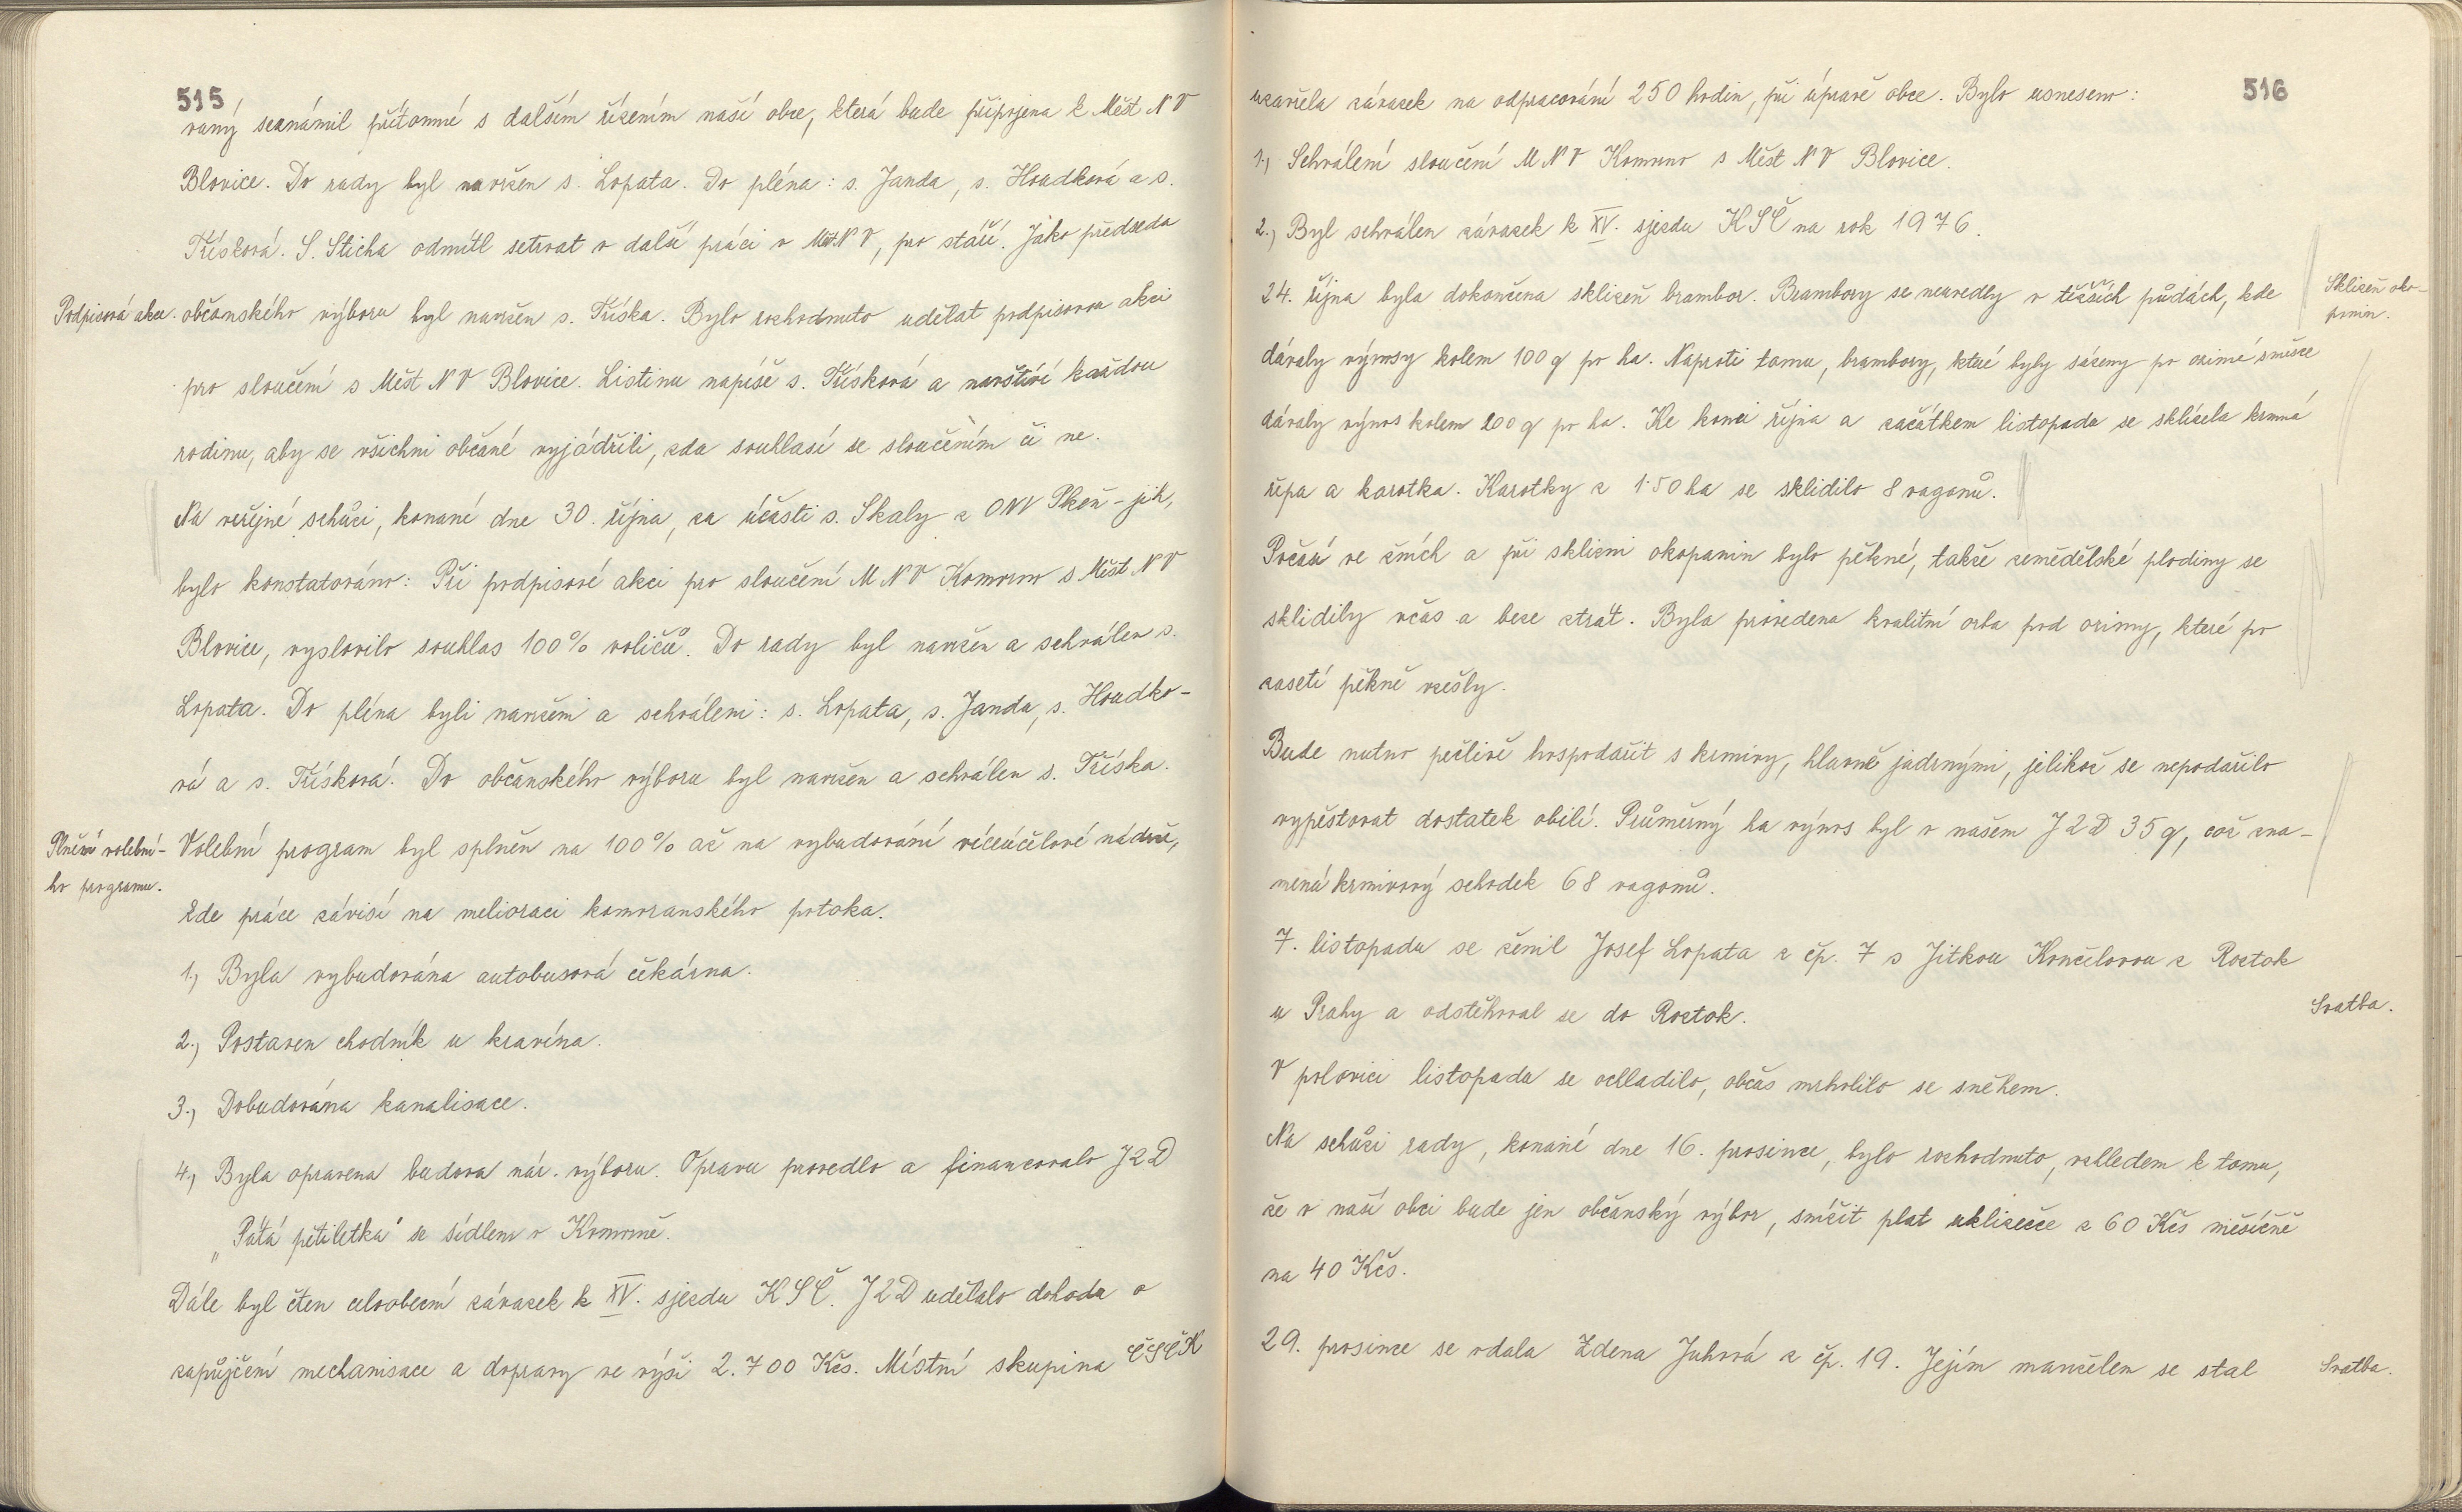 515
vaný seznámil přítomné s dalším řízením naší obce, která bude připojena k Měst NV
Blovice. Do rady byl navržen s. Lopata. Do pléna: s. Janda, s. Houdková a s.
Třísková. S. Sticha odmítl setrvat v další práci v MěstNV, pro stáří. Jako předseda
Podpisová akce.
občanského výboru byl navržen s. Tříska. Bylo rozhodnuto udělat podpisovou akci
pro sloučení s Měst NV Blovice. Listinu napíše s. Třísková a navštíví každou
rodinu, aby se všichni občané vyjádřili, zda souhlasí se sloučením či ne.
Na veřejné schůzi, konané dne 30. října, za účasti s. Skaly z ONV Plzeň-jih,
bylo konstatováno: Při podpisové akci pro sloučení MNV Komorno s Měst NV
Blovice, vyslovilo souhlas 100% voličů. Do rady byl navržen a schválen s.
Lopata. Do pléna byli navrženi a schváleni: s. Lopata, s. Janda, s. Houdko-
vá a s. Třísková. Do občanského výboru byl navržen a schválen s. Tříska.
Plnění volební-
ho programu.
Volební program byl splněn na 100% až na vybudování víceúčelové nádrže,
kde práce závisí na melioraci komoranského potoka.
1., Byla vybudována autobusová čekárna.
2., Postaven chodník u kravína.
3., Dobudována kanalisace.
4., Byla opravena budova nár. výboru. Opravu provedlo a financovalo JZD
„Pátá pětiletka" se sídlem v Komorně.
Dále byl čten celoobecní závazek k XV. sjezdu KSČ. JZD udělalo dohodu o
zapůjčení mechanisace a dopravy ve výši 2.700 Kčs. Místní skupina ČSČK
516
uzavřela závazek na odpracování 250 hodin, při úpravě obce. Bylo usneseno:
1., Schválení sloučení MNV Komorno s Měst NV Blovice.
2., Byl schválen závazek k XV. sjezdu KSČ na rok 1976.
Sklizeň oko-
panin.
24. října byla dokončena sklizeň brambor. Brambory se neuvedly v těžších půdách, kde
dávaly výnosy kolem 100 q po ha. Naproti tomu, brambory, které byly sázeny po ozimé směsce
dávaly výnos kolem 200 q po ha. Ke konci října a začátkem listopadu se sklízela krmná
řepa a karotka. Karotky z 1·50 ha se sklidilo 8 vagonů.
Počasí ve žních a při sklizni okopanin bylo pěkné, takže zemědělské plodiny se
sklidily včas a beze ztrát. Byla provedena kvalitní orba pod ozimy, které po
zasetí pěkně vzešly.
Bude nutno pečlivě hospodařit s krmivy, hlavně jadrnými, jelikož se nepodařilo
vypěstovat dostatek obilí. Průměrný ha výnos byl v našem JZD 35 q, což zna-
mená krmivový schodek 68 vagonů.
7. listopadu se ženil Josef Lopata z čp. 7 s Jitkou Končelovou z Roztok
u Prahy a odstěhoval se do Roztok.
Svatba.
V polovici listopadu se ochladilo, občas mrholilo se sněhem.
Na schůzi rady, konané dne 16. prosince, bylo rozhodnuto, vzhledem k tomu,
že v naší obci bude jen občanský výbor, snížit plat uklizečce z 60 Kčs měsíčně
na 40 Kčs.
29. prosince se vdala Zdena Juhová z čp. 19. Jejím manželem se stal
Svatba.